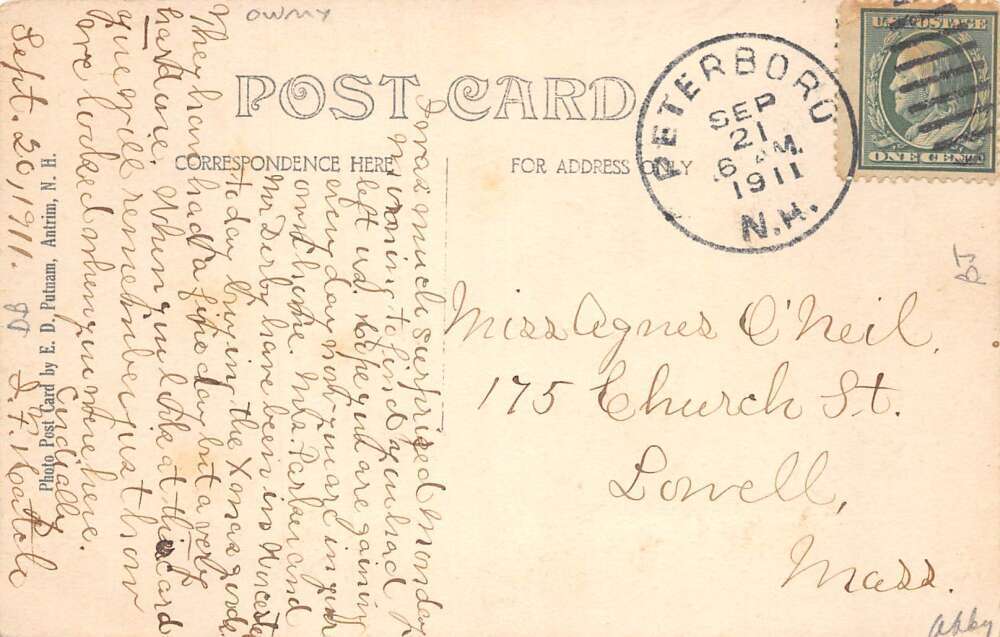 OWNY
POST CARD
CORRESPONDENCE HERE
FOR ADDRESS ONLY
PETERBORO
SEP
21
6 AM
1911
N.H.
U.S. POSTAGE
ONE CENT
I was much surprised Monday
morning to find you had
left us. hope you are gaining
every day now you are in your
own home. Mrs. Parker and
Mr Derby have been in Worcester
today buying the Xmas goods
They have had a fine day but a very
hard one. When you look at this card
you will remember just how
we looked when you were here.
Cordially
Sept. 20, 1911.
Photo Post Card by E. D. Putnam, Antrim, N. H.
DB
Miss Agnes O'Neil,
175 Church St.
Lowell,
Mass.